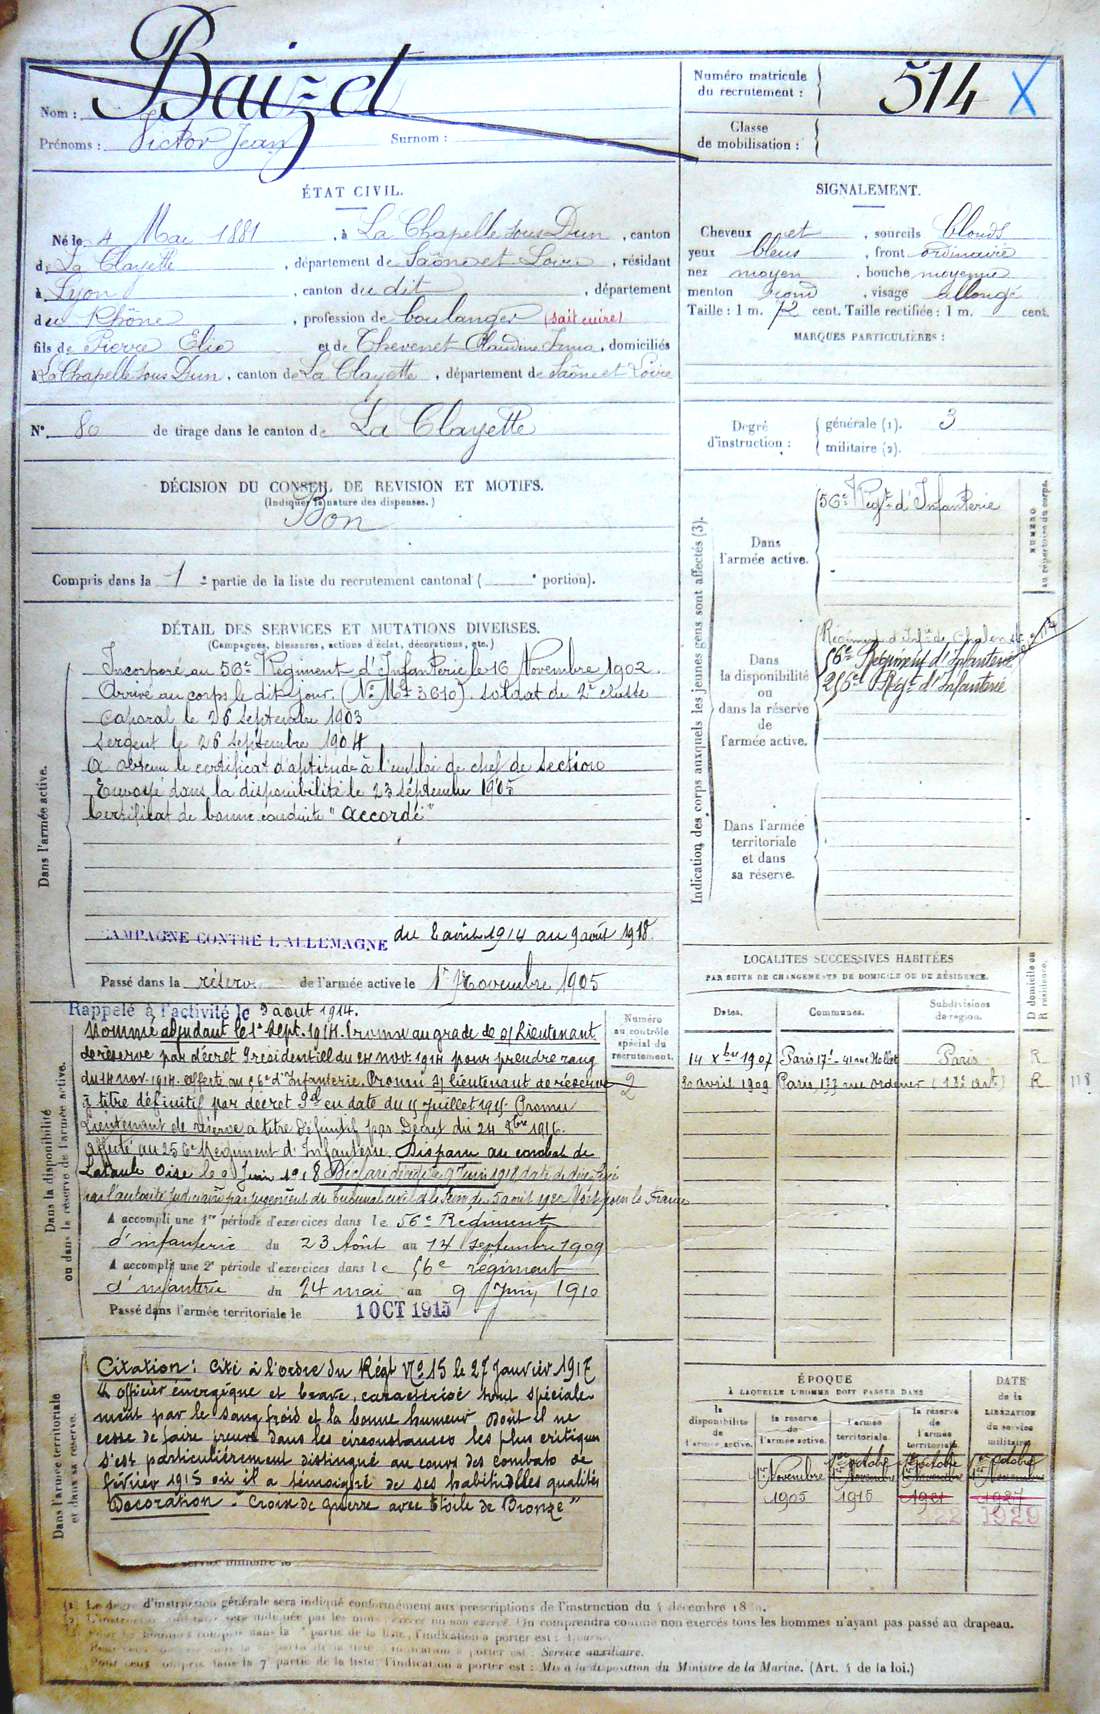 Nom : Baizet
Prénoms : Victor Jean Surnom :
Numéro matricule du recrutement : 514 X
Classe de mobilisation :
ÉTAT CIVIL.
Né le 4 Mai 1881, à La Chapelle sous Dun, canton
de La Clayette, département de Saône et Loire, résidant
à Lyon, canton du dit, département
du Rhône, profession de boulanger (sait cuire)
fils de Pierre Elie et de Thevenet Claudine, domiciliés
à La Chapelle sous Dun, canton de La Clayette, département de Saône et Loire
N° 80 de tirage dans le canton de La Clayette
SIGNALEMENT.
Cheveux et, sourcils blonds
yeux bleus, front ordinaire
nez moyen, bouche moyenne
menton rond, visage allongé
Taille : 1 m. 72 cent. Taille rectifiée : 1 m. cent.
MARQUES PARTICULIÈRES :
Degré d'instruction : générale (1). 3
militaire (2).
DÉCISION DU CONSEIL DE REVISION ET MOTIFS.
(Indiquer la nature des dispenses.)
Bon
Compris dans la 1e partie de la liste du recrutement cantonal ( e portion).
DÉTAIL DES SERVICES ET MUTATIONS DIVERSES.
(Campagnes, blessures, actions d'éclat, décorations, etc.)
Dans l'armée active.
Incorporé au 56e Régiment d'Infanterie le 16 Novembre 1902.
Arrivé au corps le dit jour. (N° Mle 3610). soldat de 2e classe
Caporal le 26 septembre 1903
Sergent le 26 septembre 1904
A obtenu le certificat d'aptitude à l'emploi de chef de section
Envoyé dans la disponibilité le 23 septembre 1905
Certificat de bonne conduite "accordé"
CAMPAGNE CONTRE L'ALLEMAGNE du 2 août 1914 au 9 août 1918.
Passé dans la réserve de l'armée active le 1er Novembre 1905
Dans la disponibilité ou dans la réserve de l'armée active.
Rappelé à l'activité le 3 août 1914.
Nommé adjudant le 1er Sept. 1914. Promu au grade de S/ Lieutenant
de réserve par décret Présidentiel du 24 nov. 1914 pour prendre rang
du 14 nov. 1914. affecté au 56e d'Infanterie. Promu S/ lieutenant de réserve
à titre définitif par décret Pdl en date du 15 juillet 1915. Promu
Lieutenant de réserve à titre définitif par Décret du 24 8bre 1916.
affecté au 256e Régiment d'Infanterie. Disparu au combat de
Lataule Oise le 9 Juin 1918 Déclaré décédé le 9 Juin 1918 date de
par l'autorité judiciaire par jugement du tribunal civil de la Seine du 5 août 1920 Mort pour la France
A accompli une 1re période d'exercices dans le 56e Régiment
d'infanterie du 23 Août au 14 septembre 1909
A accompli une 2e période d'exercices dans le 56e régiment
d'infanterie du 24 mai au 9 Juin 1910
Passé dans l'armée territoriale le 1 OCT 1915
Numéro au contrôle spécial du recrutement.
2
Dans l'armée territoriale et dans sa réserve.
Citation : Cité à l'ordre du Régt N° 15 le 27 janvier 1917
"officier énergique et brave, caractérisé tout spéciale-
ment par le sang froid et la bonne humeur dont il ne
cesse de faire preuve dans les circonstances les plus critiques
s'est particulièrement distingué au cours des combats de
février 1915 où il a témoigné de ses habituelles qualités
Décoration - "Croix de guerre avec Étoile de Bronze"
service militaire le
Indication des corps auxquels les jeunes gens sont affectés (3).
NUMÉRO au répertoire du corps.
Dans l'armée active.
56e Régt d'Infanterie
Dans la disponibilité ou dans la réserve de l'armée active.
Régiment d'Infie de Chalon
56e Régiment d'Infanterie
256e Régt d'Infanterie
Dans l'armée territoriale et dans sa réserve.
LOCALITÉS SUCCESSIVES HABITÉES
PAR SUITE DE CHANGEMENTS DE DOMICILE OU DE RÉSIDENCE.
Dates. Communes. Subdivisions de région. D domicile ou R résidence.
14 Xbre 1907 Paris 17e - 41 rue Nollet Paris R
20 avril 1909 Paris, 177 rue ordener (18e art) R 118
ÉPOQUE
À LAQUELLE L'HOMME DOIT PASSER DANS
DATE de la LIBÉRATION du service militaire.
la disponibilité de l'armée active.
la réserve de l'armée active.
l'armée territoriale.
la réserve de l'armée territoriale.
1er octobre 1er octobre 1er octobre
1er Novembre 1er Novembre 1er Novembre 1er Novembre
1905 1915 1921 1927
1922 1929
(1) Le degré d'instruction générale sera indiqué conformément aux prescriptions de l'instruction du 4 décembre 18
On comprendra comme non exercés tous les hommes n'ayant pas passé au drapeau.
partie de la liste, l'indication à porter est :
l'indication à porter est : Service auxiliaire.
Pour ceux compris dans la 7e partie de la liste, l'indication à porter est : Mis à la disposition du Ministre de la Marine. (Art. 4 de la loi.)